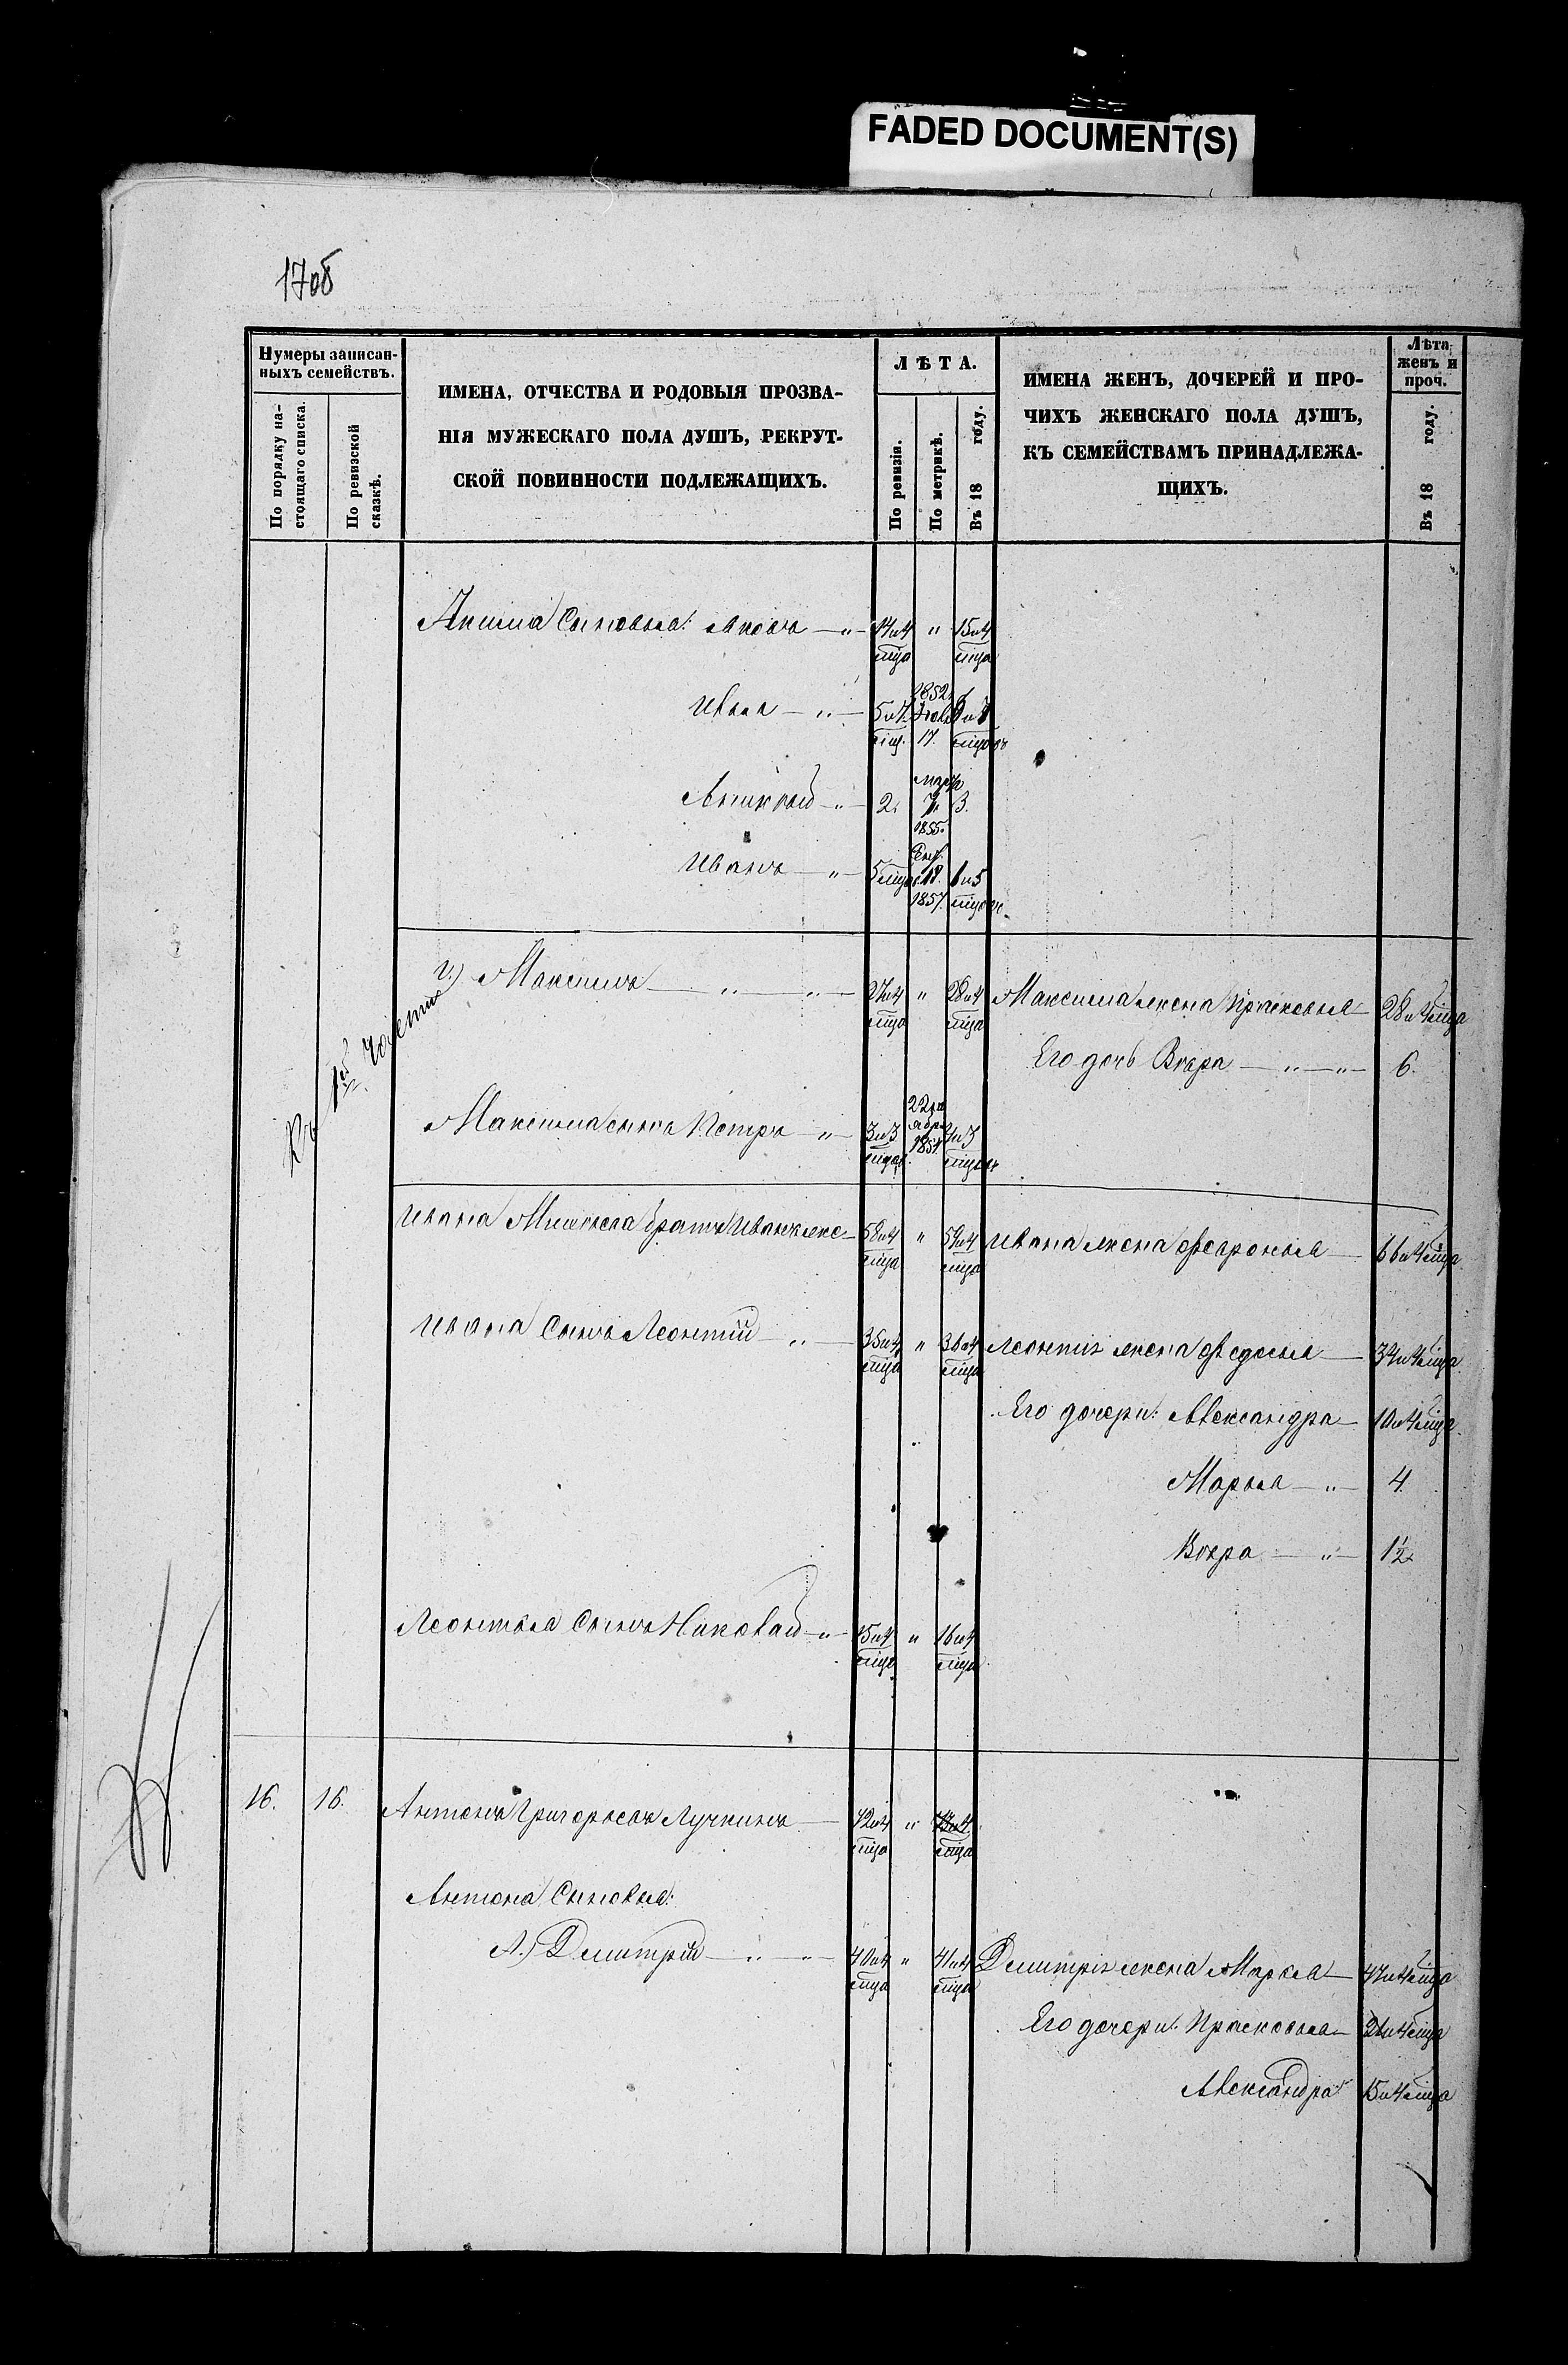 FADED DOCUMENT(S)
17об
Нумеры записан-
ныхъ семействъ.
По порядку на-
стоящаго списка.
По ревизской
сказкѣ.
ИМЕНА, ОТЧЕСТВА И РОДОВЫЯ ПРОЗВА-
НІЯ МУЖЕСКАГО ПОЛА ДУШЪ, РЕКРУТ-
СКОЙ ПОВИННОСТИ ПОДЛЕЖАЩИХЪ.
ЛѢТА.
По ревизіи.
По метрикѣ.
Въ 18 году.
ИМЕНА ЖЕНЪ, ДОЧЕРЕЙ И ПРО-
ЧИХЪ ЖЕНСКАГО ПОЛА ДУШЪ,
КЪ СЕМЕЙСТВАМЪ ПРИНАДЛЕЖА-
ЩИХЪ.
Лѣта
женъ и
проч.
Въ 18 году.
Акима Сыновья: Яковъ — „ — 14 и 4 мца „ 15 и 4 мца
Илья — „ — 5 и 7 мц. 1852 17.
— „ — 2. марта 7. 1855. 3.
Иванъ — „ — 5 мцов 18. 1857. 1 и 5 мцовъ
Къ 1й Части
Максимъ — „ — „ — 27 и 4 мца „ 28 и 4 мца Максима жена Прасковья — 28 и 4 мца
Его дочь Вѣра — „ — „ — 6.
Максима сынъ Петръ — „ — 3 и 3 мца 1854. 4 и 3 мца
Ивана братъ Иванъ — 58 и 4 мца „ 59 и 4 мца Ивана жена Февронья — 66 и 4 мца
Ивана Сынъ Леонтій — „ — 35 и 4 мца „ 36 и 4 мца Леонтія жена Федосья — 34 и 4 мца
Его дочери: Александра — 10 и 4 мца
Марья — „ — 4.
Вѣра — „ — 1½
Леонтья Сынъ Николай — „ — 15 и 4 мца „ 16 и 4 мца
16. 16. Антонъ Григорьевъ Лучкинъ — 72 и 4 мца „ 73 и 4 мца
Антона Сыновья:
Дмитрій — „ — „ — 40 и 4 мца „ 41 и 4 мца Дмитрія жена — 47 и 4 мца
Его дочери: Прасковья — 21 и 4 мца
Александра 15 и 4 мца